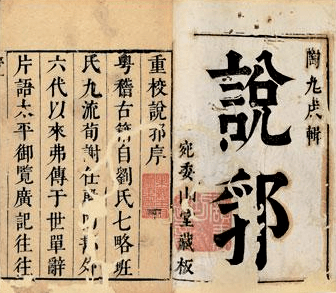 陶九成輯
說郛
宛委山堂藏板
重校說郛序
粵稽古籍自劉氏七略班
氏九流荀謝任
六代以來弗傳于世單辭
片語太平御覽廣記往往